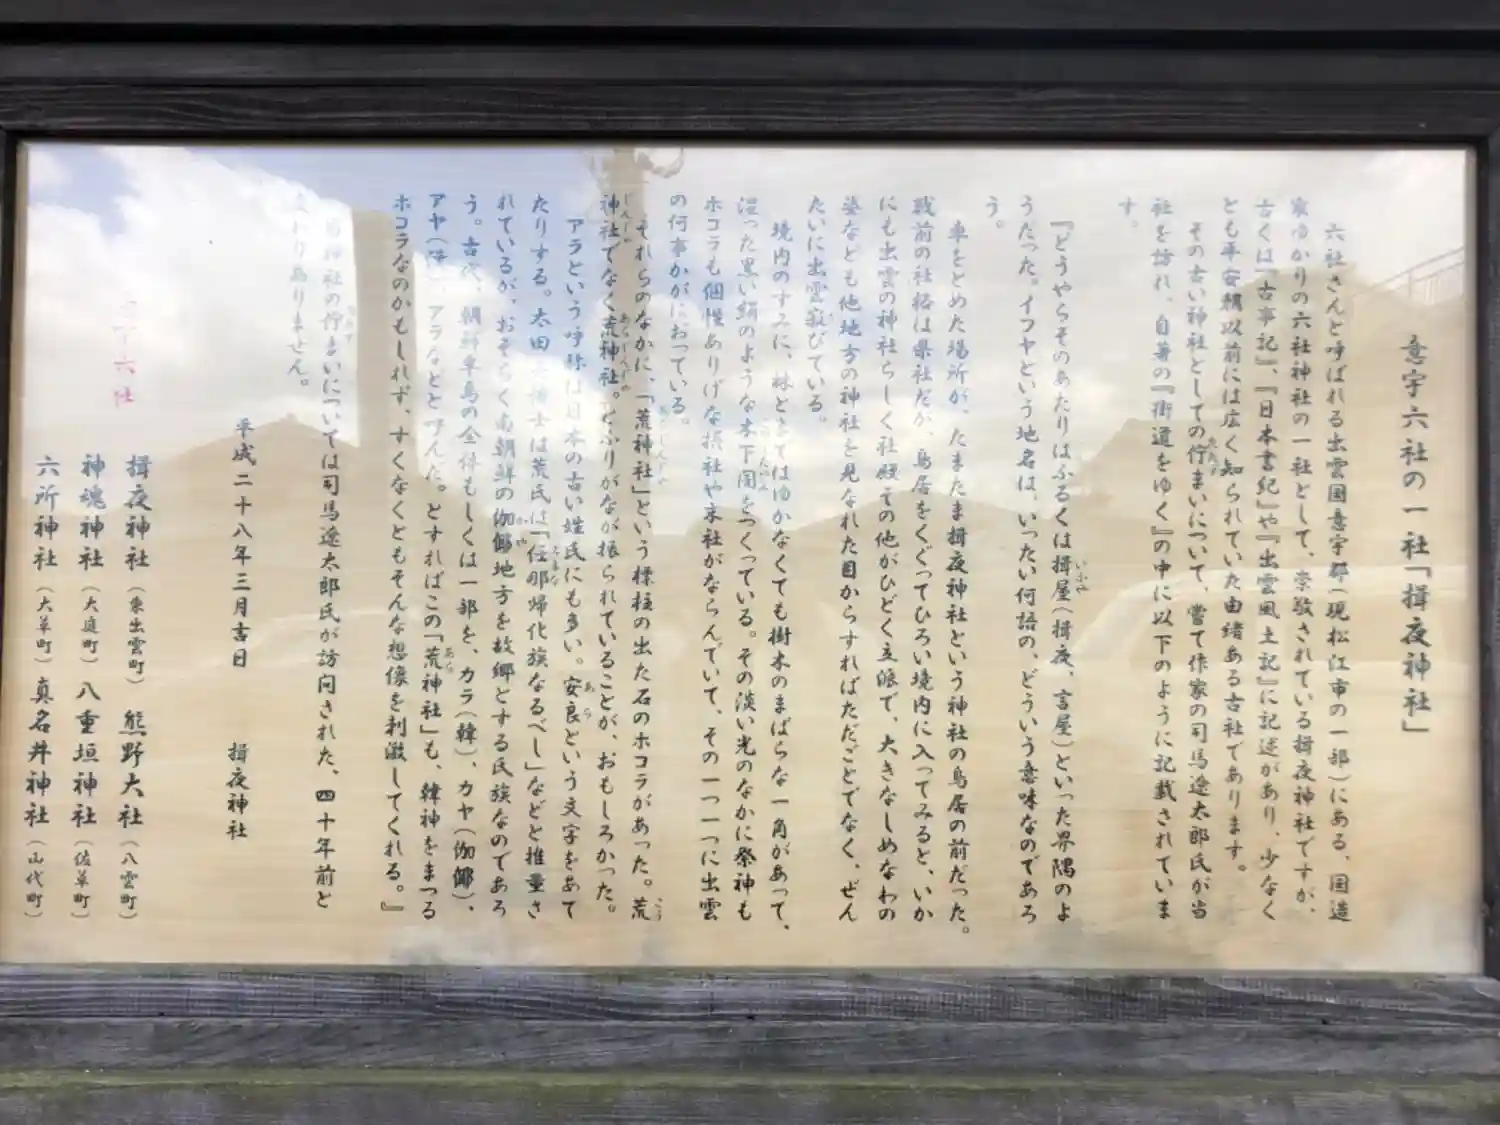 意宇六社の一社「揖夜神社」
六社さんと呼ばれる出雲国意宇郡(現松江市の一部)にある、国造
家ゆかりの六社神社の一社として、崇敬されている揖夜神社ですが、
古くは『古事記』、『日本書紀』や『出雲風土記』に記述があり、少なく
とも平安朝以前には広く知られていた由緒ある古社であります。
その古い神社としての佇まいについて、嘗て作家の司馬遼太郎氏が当
社を訪れ、自著の『街道をゆく』の中に以下のように記載されていま
す。
『どうやらそのあたりはふるくは揖屋(揖夜、言屋)といった界隈のよ
うだった。イフヤという地名は、いったい何語の、どういう意味なのであろ
う。
車をとめた場所が、たまたま揖夜神社という神社の鳥居の前だった。
戦前の社格は県社だが、鳥居をくぐってひろい境内に入ってみると、いか
にも出雲の神社らしく社殿その他がひどく立派で、大きなしめなわの
姿なども他地方の神社を見なれた目からすればただごとでなく、ぜん
たいに出雲寂びている。
境内のすみに、林とまではゆかなくても樹木のまばらな一角があって、
湿った黒い絹のような木下闇をつくっている。その淡い光のなかに祭神も
ホコラも個性ありげな摂社や末社がならんでいて、その一つ一つに出雲
の何事かがにおっている。
それらのなかに、「荒神社」という標柱の出た石のホコラがあった。荒
神社でなく荒神社。とふりがなが振られていることが、おもしろかった。
アラという呼称は日本の古い姓氏にも多い。安良という文字をあて
たりする。太田 博士は荒氏は「任那帰化族なるべし」などと推量さ
れているが、おそらく南朝鮮の伽倻地方を故郷とする氏族なのであろ
う。古代、朝鮮半島の全体もしくは一部を、カラ(韓)、カヤ(伽倻)、
アヤ( )、アラなどとよんだ。とすればこの「荒神社」も、韓神をまつる
ホコラなのかもしれず、すくなくともそんな想像を刺激してくれる。』
神社の佇まいについては司馬遼太郎氏が訪問された、四十年前と
わりありません。
平成二十八年三月吉日 揖夜神社
意宇六社
揖夜神社(東出雲町) 熊野大社(八雲町)
神魂神社(大庭町) 八重垣神社(佐草町)
六所神社(大草町) 真名井神社(山代町)